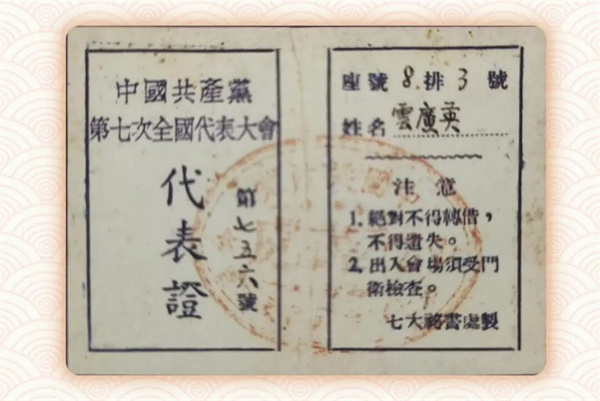 中國共產黨
第七次全國代表大會
代表證
第七五六號
座號 8 排 3 號
姓名 雲廣英
注意
1. 絕對不得轉借,
不得遺失。
2. 出入會場須受門
衛檢查。
七大祕書處製